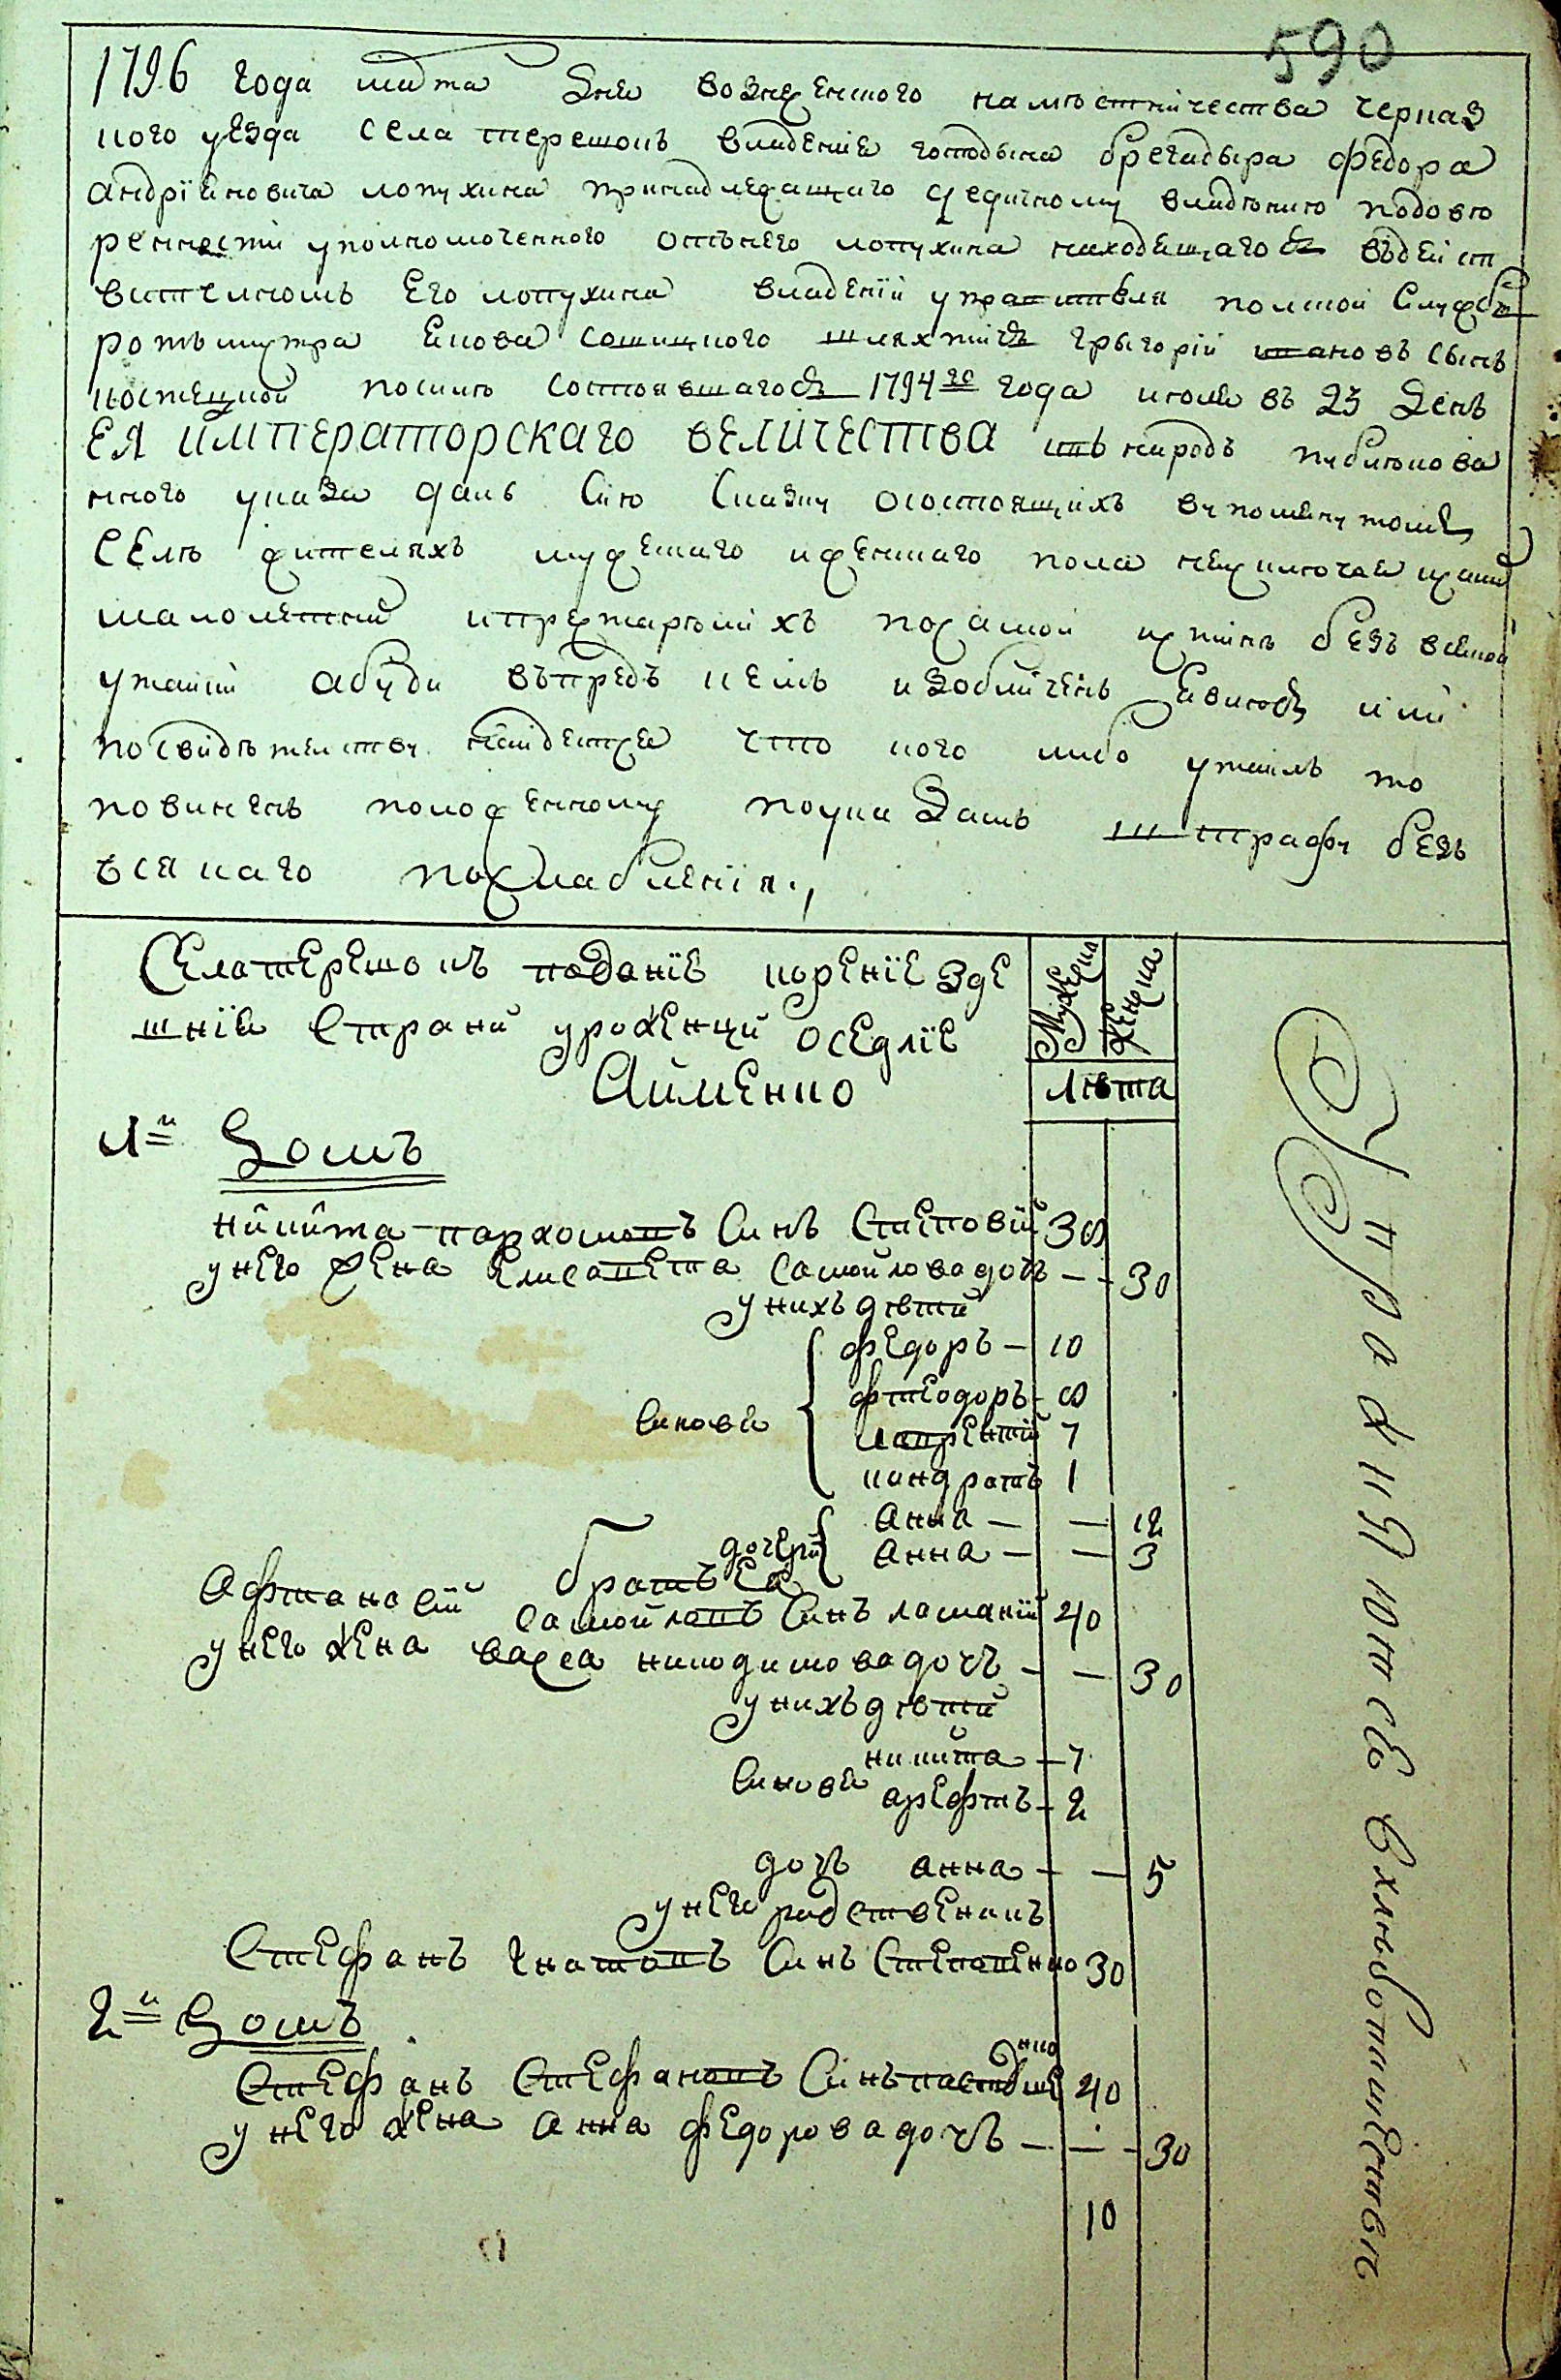 590
1796 года марта дня вознесенского наместничества черкас
кого уезда села терешокъ владение господина брегадира федора
андрїяновича лопухина принадлежащаго ксдешному владению по дове
ренности уполномоченного отънего лопухина находящагося въдейст
вителномъ Его лопухина владенїи управителя полской Службы
ротъмистра
шляхтичь грыгорїй ивановъ сынъ
посилѣ состоявшагося 1794го года июня въ 23 день
ЕЯ ИМПЕРАТОРСКАГО ВЕЛИЧЕСТВА въ народъ публикова
нного указа далъ Сию Сказку осостоящихъ вупомянутомъ
Селѣ жителяхъ мужескаго иженскаго пола неисключая исами
малолетныхъ ипрестарелихъ посамой истинѣ безъ всякой
утайки абуди въпредь кемъ изобличенъ явлюсь или
посвидѣтелству найдется что кого либо утаилъ то
повиненъ положенному поуказамъ штрафу безъ
всякаго послабленїя.,
Села терешокъ поданїе коренїе зде
шнїе Страни уроженци оседлїе
Айменно
Мужеска
Женска
лѣта
1й Домъ
никита пархомовъ Синъ Степовїй 38
унего жена Елисавета самойлова дочъ — — 30
унихъ дѣти
Синовя
федоръ — 10
фтеодоръ - 8
лаврентїй 7
кондратъ 1
дочери
анна — — 12
анна — — 3
братъ Ея
афтанасїй самойловъ Синъ ломакїй 40
унего жена васса никодимова дочъ — — 30
унихъ дѣти
Синовя
никита — 7
арефтъ - 2
дочъ анна — — 5
унего родственикъ
Стефанъ игнатовъ Синъ Степаненко 30
2й Домъ
Стефанъ Стефановъ Синъ пастушенко 40
унего жена анна федорова дочъ — — 30
10
Упражняются въ хлѣбопашествѣ